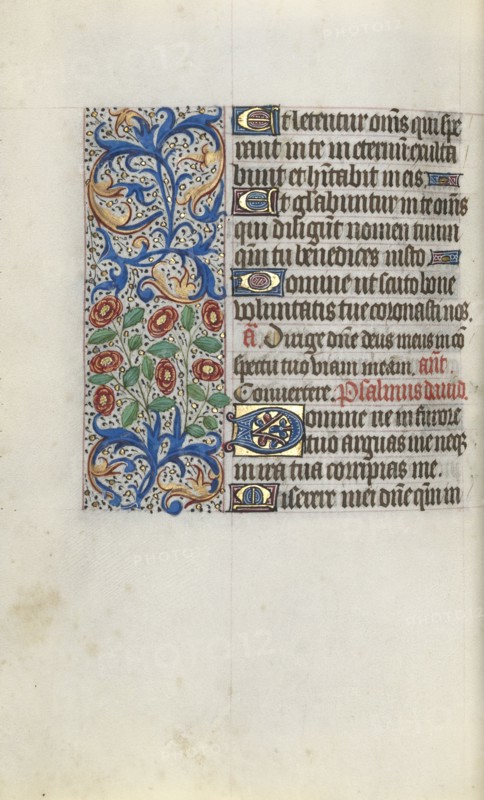 Et letentur om̃s qui spe
rant in te in eternũ: exulta
bunt et hĩtabit in eis.
Et gl̃abuntur in te om̃s
qui diligũt nomen tuum
qui tu benedices iusto
Domine ut scuto bone
voluntatis tue coronasti nos.
añ. Dirige dñe deus meus in cõ
spectu tuo viam meam. ant̃.
Convertere. Psalmus david.
Domine ne in furore
tuo arguas me neqȝ
in ira tua corripias me.
Miserere mei dñe qm̃ in
PHOTO12